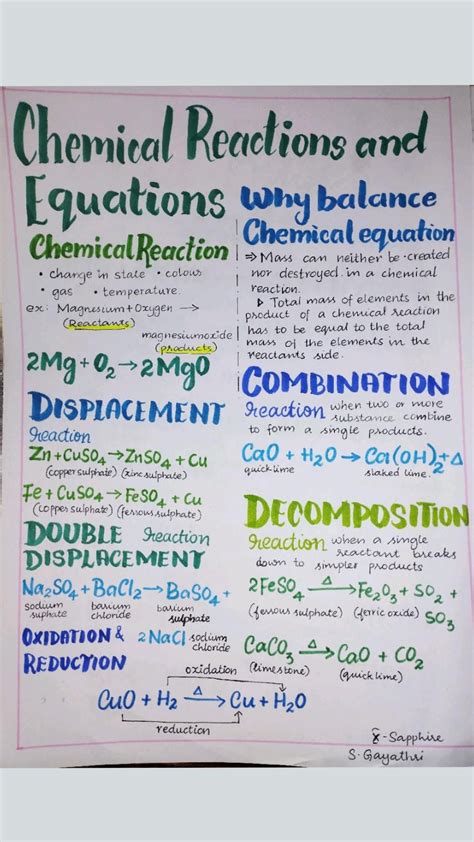 Chemical Reactions and
Equations
Chemical Reaction
• change in state • colour
• gas • temperature
ex: Magnesium + Oxygen →
(Reactants)
magnesiumoxide
(products)
2Mg + O₂ → 2MgO
DISPLACEMENT
reaction
Zn + CuSO₄ → ZnSO₄ + Cu
(copper sulphate) (zinc sulphate)
Fe + CuSO₄ → FeSO₄ + Cu
(copper sulphate) (ferrous sulphate)
DOUBLE reaction
DISPLACEMENT
Na₂SO₄ + BaCl₂ → BaSO₄ +
sodium barium barium
suphate chloride sulphate
2NaCl sodium
chloride
Why balance
Chemical equation
⇒ Mass can neither be created
nor destroyed in a chemical
reaction.
▷ Total mass of elements in the
product of a chemical reaction
has to be equal to the total
mass of the elements in the
reactants side.
COMBINATION
reaction when two or more
substance combine
to form a single products.
CaO + H₂O → Ca(OH)₂ + Δ
quick lime slaked lime.
DECOMPOSITION
reaction when a single
reactant breaks
down to simpler products
2FeSO₄ —Δ→ Fe₂O₃ + SO₂ +
(ferrous sulphate) (ferric oxide) SO₃
CaCO₃ —Δ→ CaO + CO₂
(limestone) (quick lime)
OXIDATION &
REDUCTION
oxidation
CuO + H₂ —Δ→ Cu + H₂O
reduction
X̄ - Sapphire
S. Gayathri